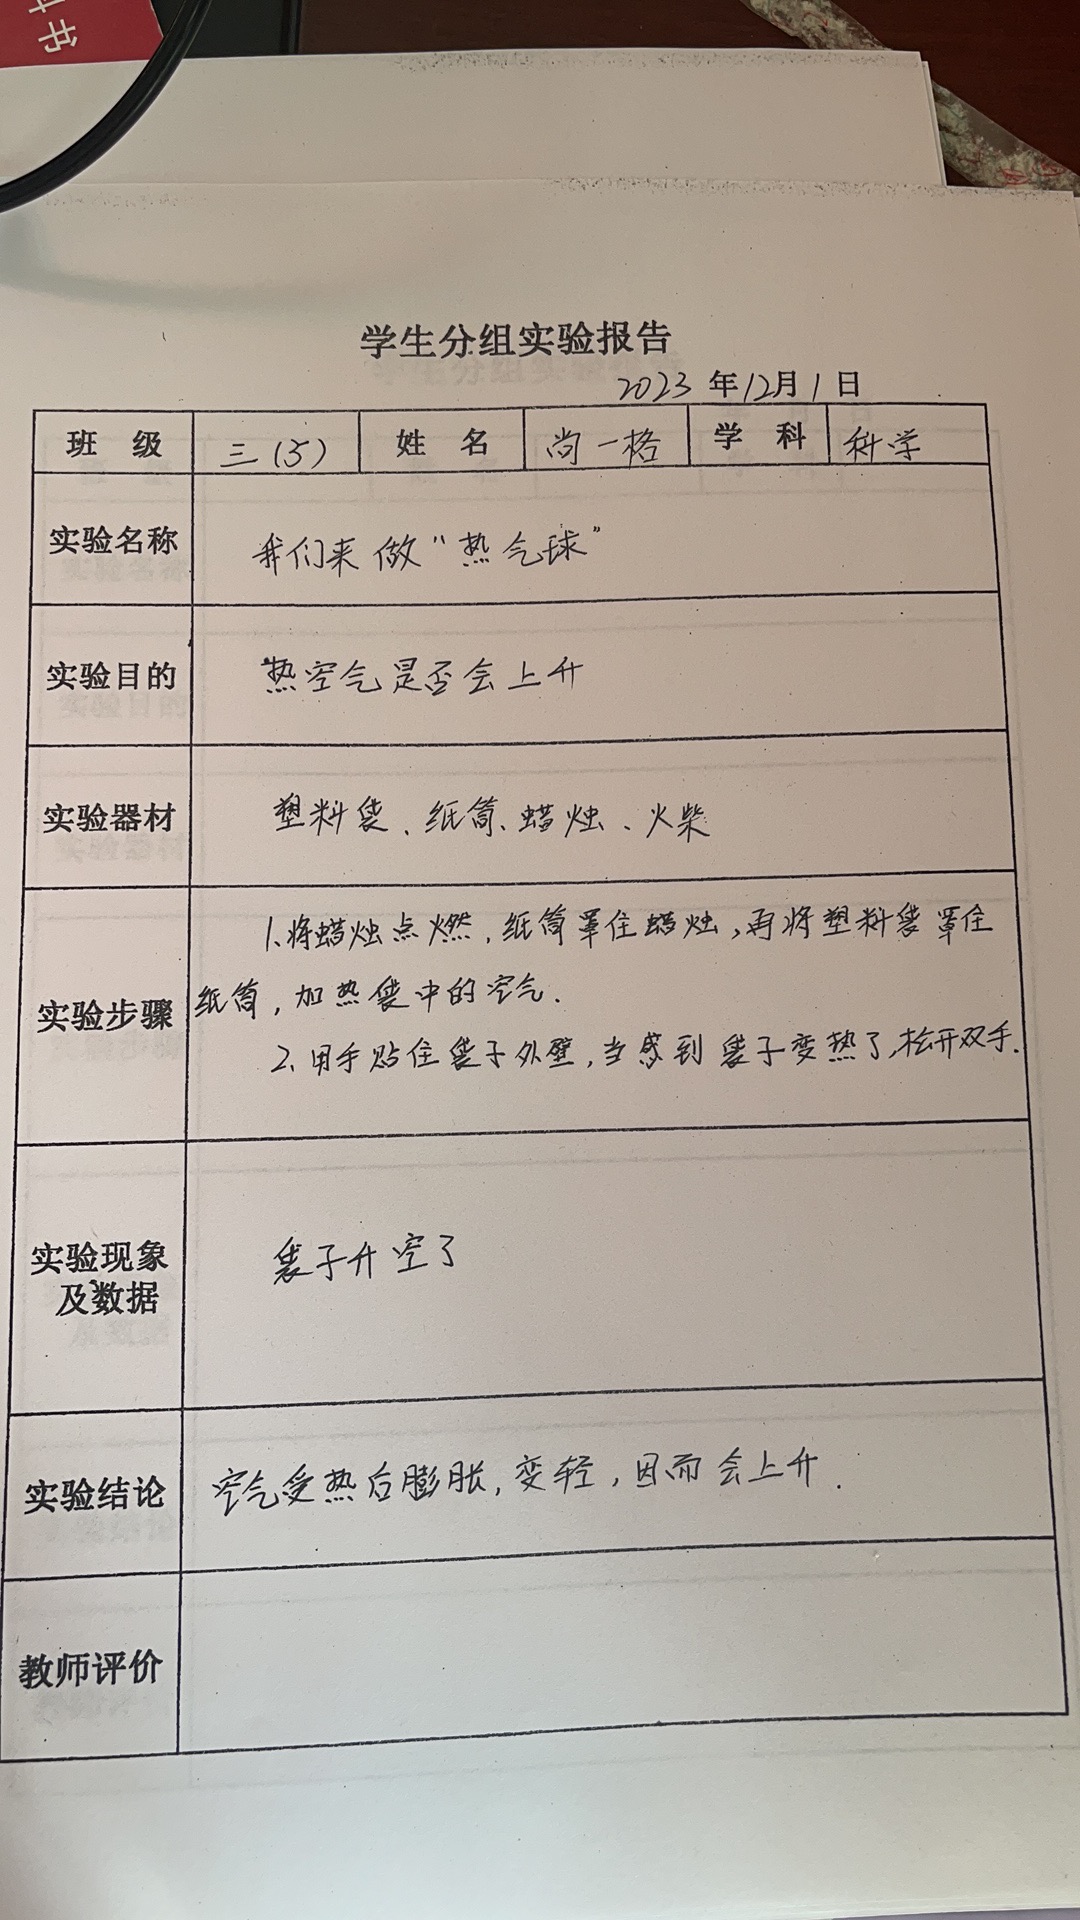 书
学生分组实验报告
2023年12月1日
班 级 三(5) 姓 名 尚一格 学 科 科学
实验名称 我们来做“热气球”
实验目的 热空气是否会上升
实验器材 塑料袋、纸筒、蜡烛、火柴
实验步骤
1.将蜡烛点燃,纸筒罩住蜡烛,再将塑料袋罩住
纸筒,加热袋中的空气.
2.用手贴住袋子外壁,当感到袋子变热了,松开双手.
实验现象
及数据
袋子升空了
实验结论 空气受热后膨胀,变轻,因而会上升.
教师评价